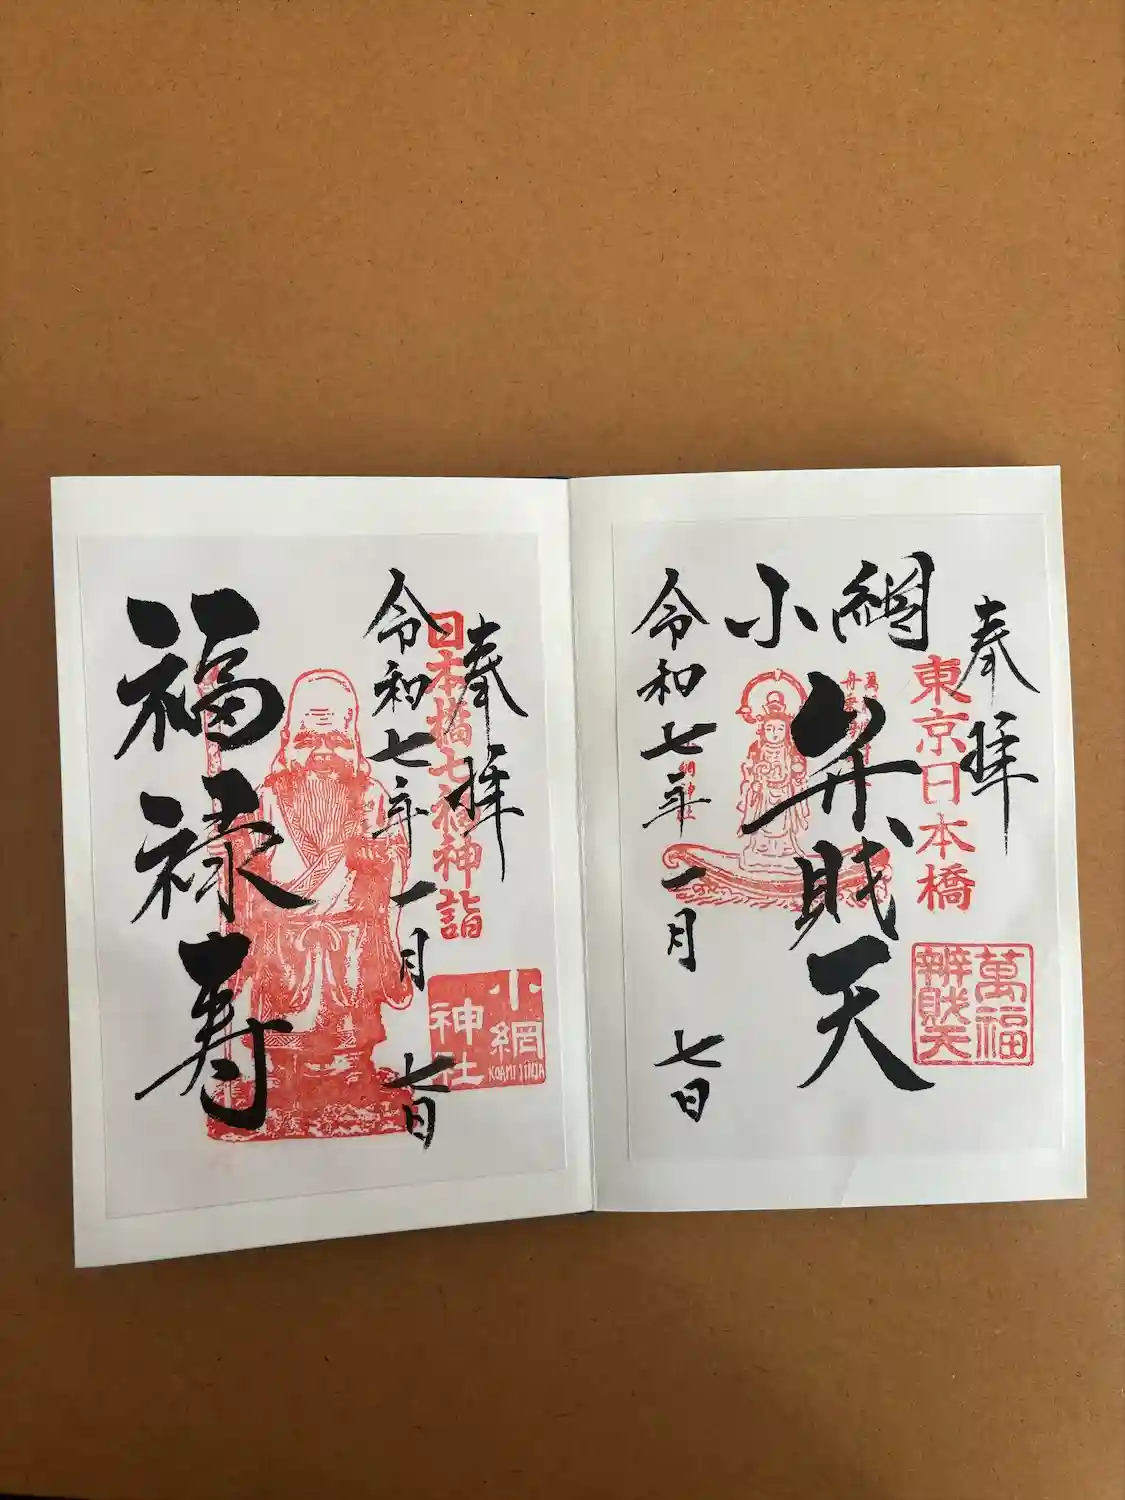 奉拝
東京日本橋
萬福
辨財天
小網
弁財天
令和七年一月七日
奉拝
日本橋七福神詣
小網
神社
KOAMI JINJA
令和七年一月七日
福禄寿